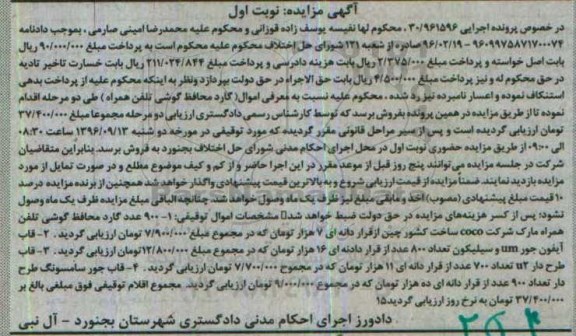 آگهی مزایده: نوبت اول
در خصوص پرونده اجرایی ۳۰/۹۶۱۵۹۶، محکوم لها نفیسه یوسف زاده قوزانی و محکوم علیه محمدرضا امینی صارمی، بموجب دادنامه
۹۶۰۹۹۷۵۸۷۱۷۰۰۰۷۴ – ۹۶/۰۲/۱۹ صادره از شعبه ۱۳۱ شورای حل اختلاف محکوم علیه محکوم است به پرداخت مبلغ ۹۰/۰۰۰/۰۰۰ ریال
بابت اصل خواسته و پرداخت مبلغ ۲/۳۷۵/۰۰۰ ریال بابت هزینه دادرسی و پرداخت مبلغ ۲۱۱/۰۲۴/۸۴۴ ریال بابت خسارت تاخیر تادیه
در حق محکوم له و نیز پرداخت مبلغ ۴/۵۰۰/۰۰۰ ریال بابت حق الاجراء در حق دولت بپردازد ونظر به اینکه محکوم علیه از پرداخت بدهی
استنکاف نموده و اعسار نامبرده نیز رد شده، محکوم علیه نسبت به معرفی اموال( گارد محافظ گوشی تلفن همراه ) طی دو مرحله اقدام
نموده تا از طریق مزایده در همین پرونده بفروش برسد که توسط کارشناس رسمی دادگستری ارزیابی دو مرحله مجموعا مبلغ ۳۷/۴۰۰/۰۰۰
تومان ارزیابی گردیده است و پس از سیر مراحل قانونی مقرر گردیده که مورد توقیفی در مورخه دو شنبه ۱۳۹۶/۰۹/۱۳ ساعت ۰۸:۳۰
الی ۰۹:۰۰ از طریق مزایده حضوری نوبت اول در محل اجرای احکام مدنی شورای حل اختلاف بجنورد به فروش برسد. بنابراین متقاضیان
شرکت در جلسه مزایده می توانند پنج روز قبل از موعد مقرر در این اجرا حاضر و از کم و کیف موضوع مطلع و در صورت تمایل از مورد
مزایده بازدید نمایند. ضمناً مزایده از قیمت ارزیابی شروع و به بالاترین قیمت پیشنهادی واگذار خواهد شد همچنین از برنده مزایده درصد
۱۰ قیمت مبلغ پیشنهادی (مصوب) اخذ و مابقی مبلغ نیز ظرف یک ماه وصول خواهد شد. چنانچه الباقی مبلغ مزایده ظرف یک ماه وصول
نشود؛ پس از کسر هزینه‌های مزایده در حق دولت ضبط خواهد شد مشخصات اموال توقیفی: ۱- ۹۰۰ عدد گارد محافظ گوشی تلفن
همراه مارک شرکت coco ساخت کشور چین از قرار دانه ای ۷ هزار تومان که در مجموع مبلغ ۷/۹۰۰/۰۰۰ تومان ارزیابی گردید. ۲- قاب
آیفون جور um و سیلیکون تعداد ۸۰۰ عدد از قرار دادنه ای ۱۶ هزار تومان که در مجموع مبلغ ۱۲/۸۰۰/۰۰۰ تومان ارزیابی گردید. ۳- قاب
طرح دار u۲ تعداد ۷۰۰ عدد از قرار دانه ای ۱۱ هزار تومان که در مجموع ۷/۷۰۰/۰۰۰ تومان ارزیابی گردید. ۴- قاب جور سامسونگ طرح
دار تعداد ۹۰۰ عدد از قرار دانه ای ده هزار تومان که در مجموع ۹/۰۰۰/۰۰۰ تومان ارزیابی گردید. مجموع اقلام توقیفی فوق مبلغی بالغ بر
۳۷/۴۰۰/۰۰۰ تومان به نرخ روز ارزیابی گردید۱۵
دادورز اجرای احکام مدنی دادگستری شهرستان بجنورد – آل نبی